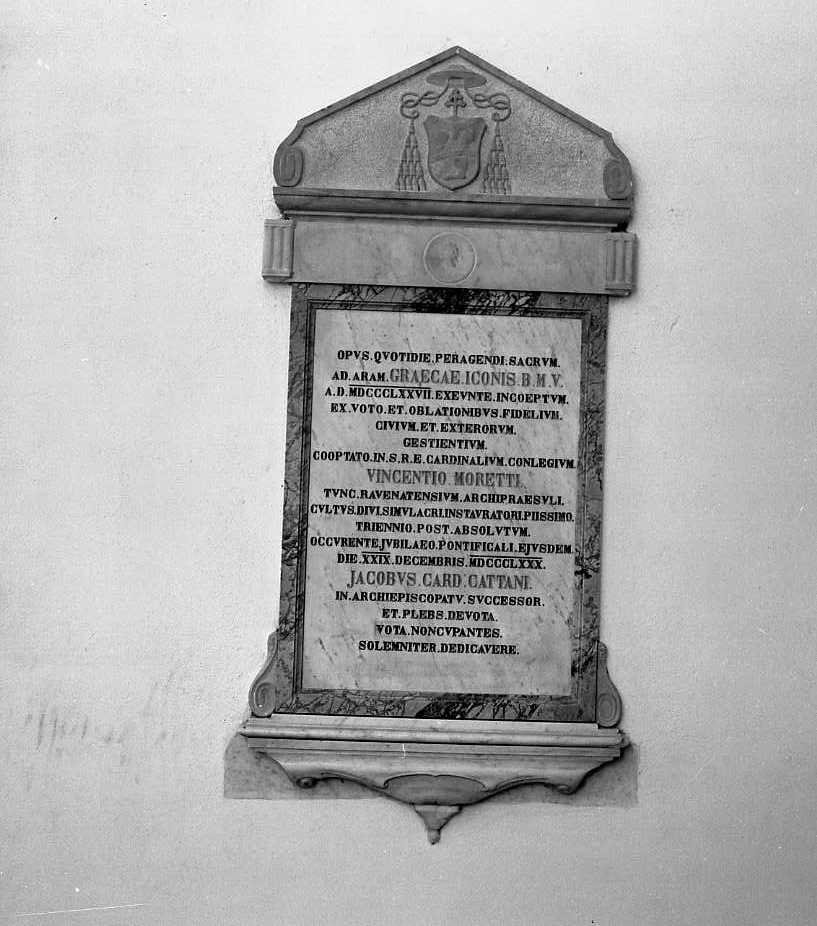 OPVS.QVOTIDIE.PERAGENDI.SACRVM.
AD.ARAM.GRAECAE.ICONIS.B.M.V.
A.D.MDCCCLXXVII.EXEVNTE.INCOEPTVM.
EX.VOTO.ET.OBLATIONIBVS.FIDELIVM.
CIVIVM.ET.EXTERORVM.
GESTIENTIVM.
COOPTATO.IN.S.R.E.CARDINALIVM.CONLEGIVM.
VINCENTIO.MORETTI.
TVNC.RAVENATENSIVM.ARCHIPRAESVLI.
CVLTVS.DIVI.SIMVLACRI.INSTAVRATORI.PIISSIMO.
TRIENNIO.POST.ABSOLVTVM.
OCCVRENTE.JVBILAEO.PONTIFICALI.EJVSDEM.
DIE.XXIX.DECEMBRIS.MDCCCLXXX.
JACOBVS.CARD.CATTANI.
IN.ARCHIEPISCOPATV.SVCCESSOR.
ET.PLEBS.DEVOTA.
VOTA.NONCVPANTES.
SOLEMNITER.DEDICAVERE.